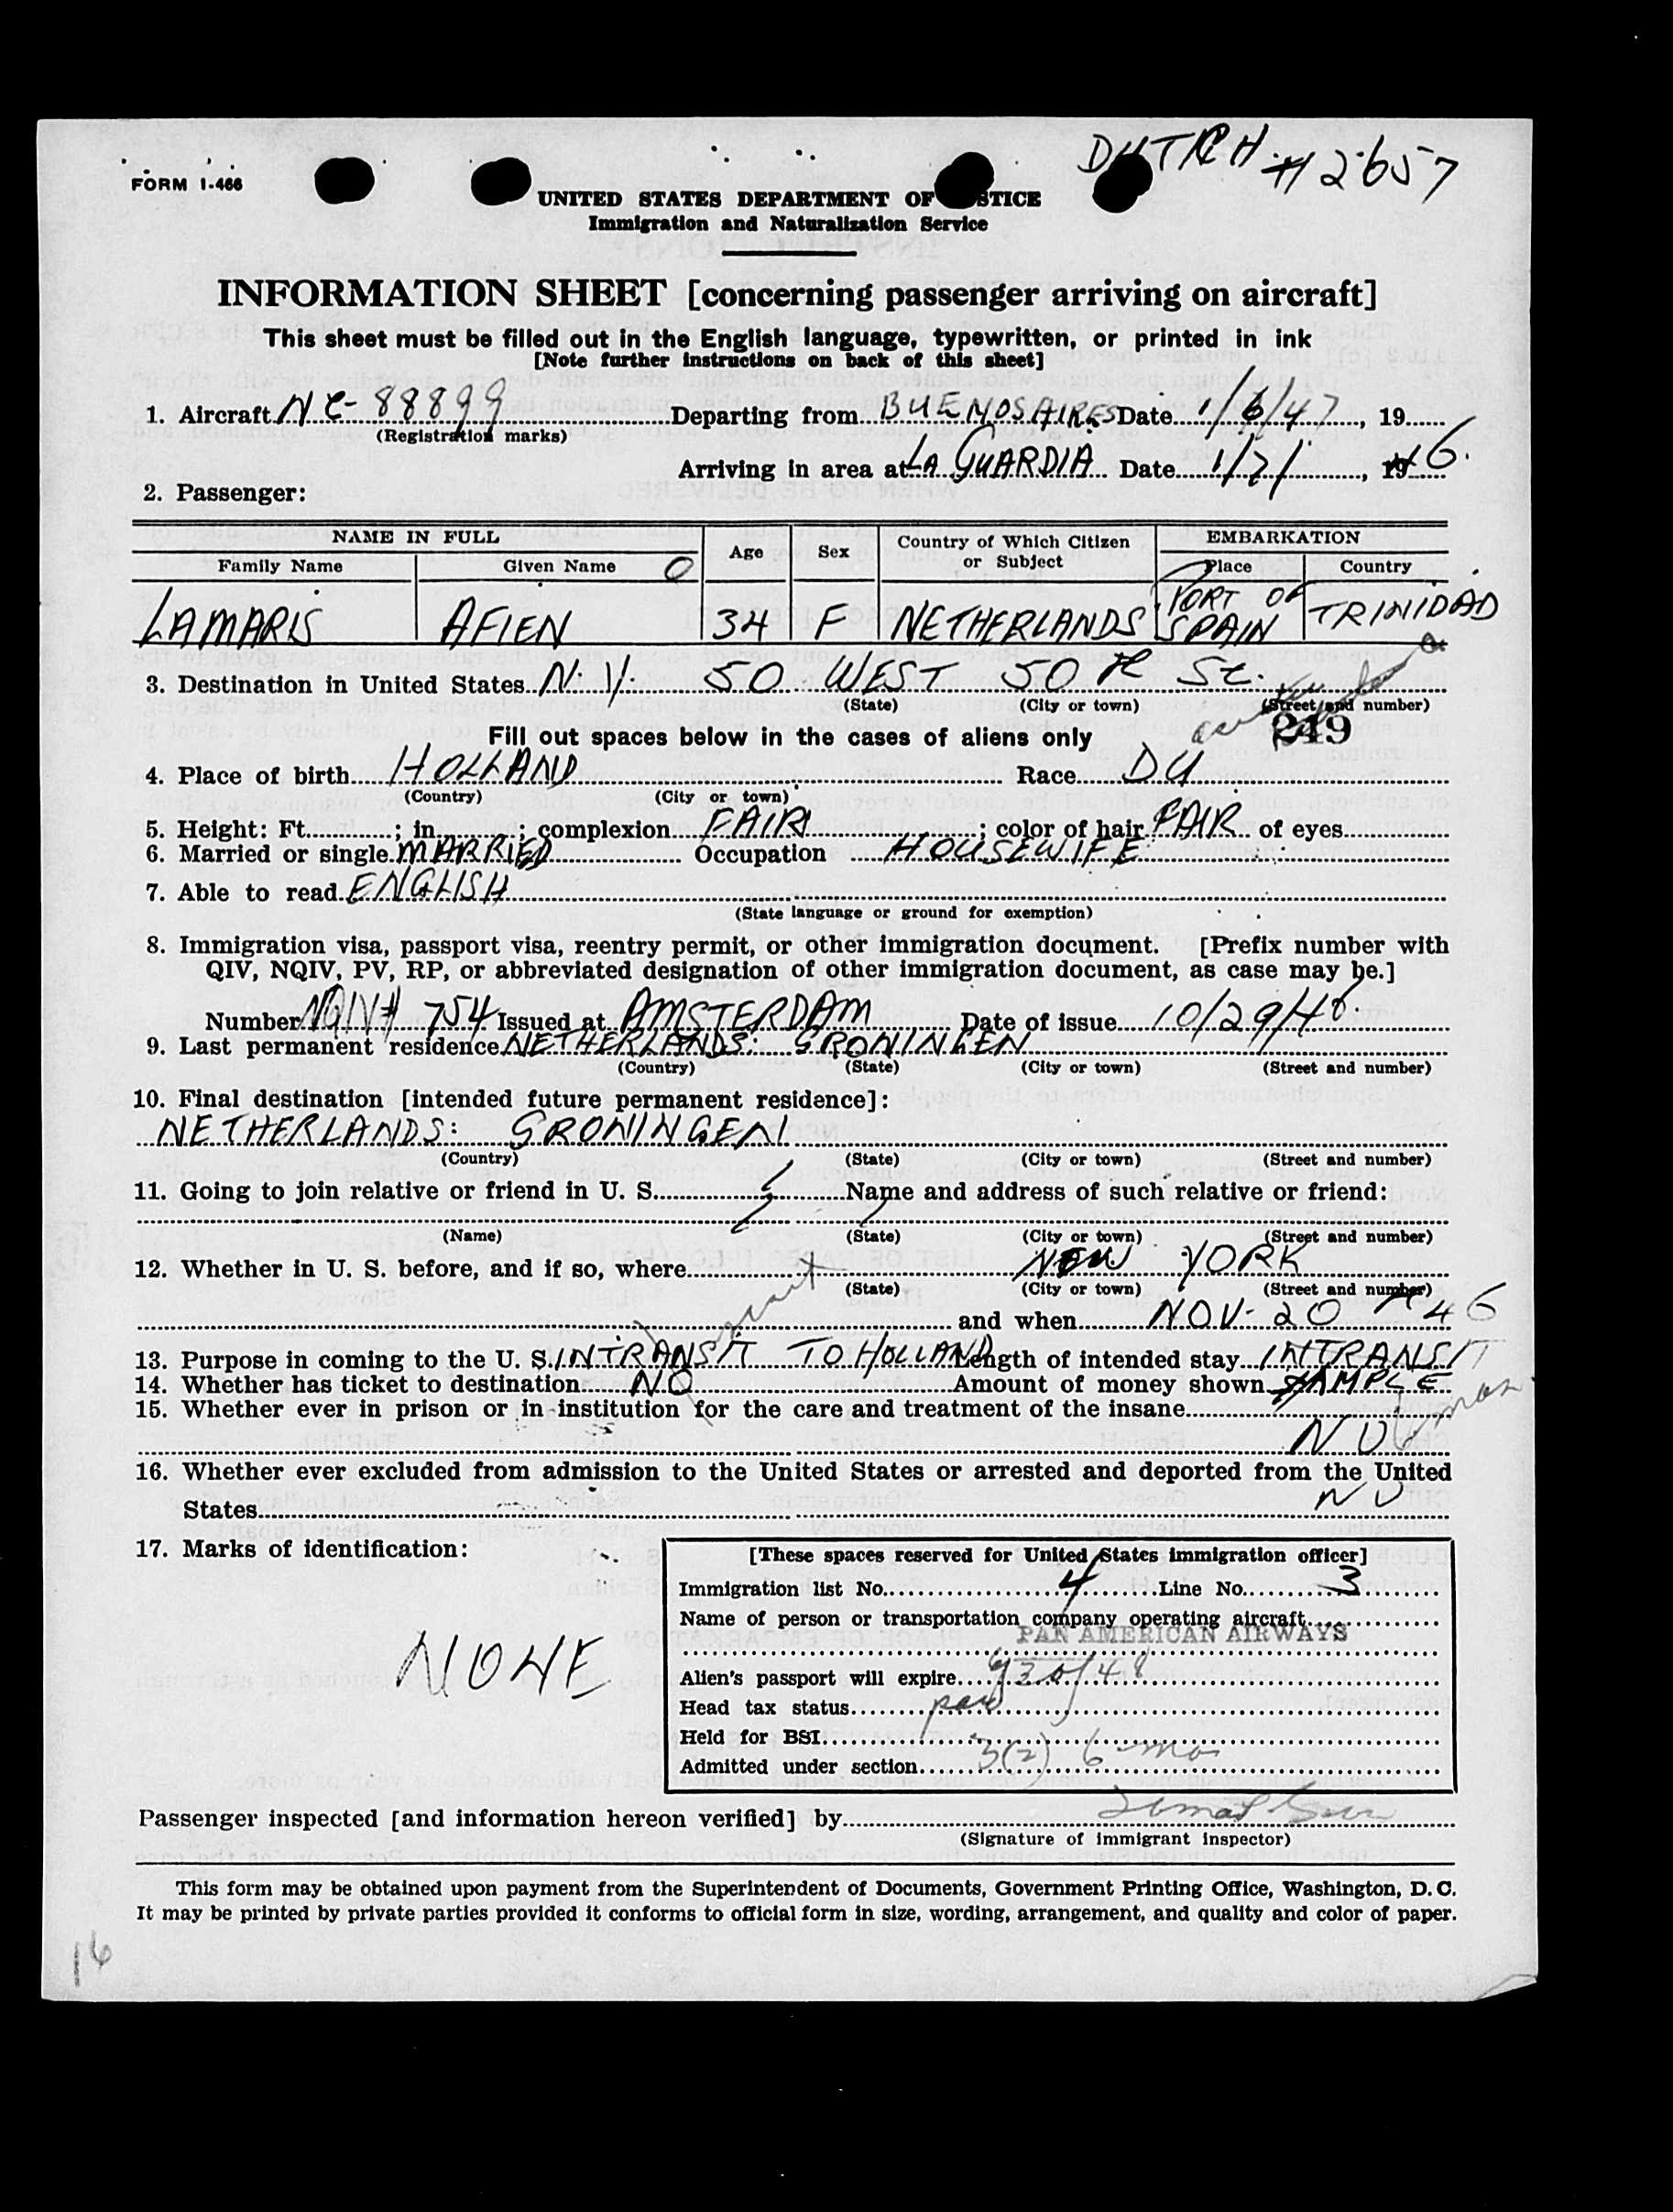 DUTCH #2657
FORM I-466
UNITED STATES DEPARTMENT OF STICE
Immigration and Naturalization Service
INFORMATION SHEET [concerning passenger arriving on aircraft]
This sheet must be filled out in the English language, typewritten, or printed in ink
[Note further instructions on back of this sheet]
1. Aircraft NC-88899 Departing from BUENOS AIRES Date 1/6/47, 19
(Registration marks)
Arriving in area at LA GUARDIA Date 1/7/, 19 46.
2. Passenger:
NAME IN FULL Age Sex Country of Which Citizen or Subject EMBARKATION
Family Name Given Name Place Country
LAMARIS AFIEN 34 F NETHERLANDS PORT OF SPAIN TRINIDAD
3. Destination in United States N.Y. 50 WEST 50th St.
(State) (City or town) (Street and number)
249
Fill out spaces below in the cases of aliens only
4. Place of birth HOLLAND Race DU
(Country) (City or town)
5. Height: Ft. ; in. ; complexion FAIR ; color of hair FAIR of eyes
6. Married or single MARRIED Occupation HOUSEWIFE
7. Able to read ENGLISH
(State language or ground for exemption)
8. Immigration visa, passport visa, reentry permit, or other immigration document. [Prefix number with
QIV, NQIV, PV, RP, or abbreviated designation of other immigration document, as case may be.]
Number NQIV# 754 Issued at AMSTERDAM Date of issue 10/29/46.
9. Last permanent residence NETHERLANDS: GRONINGEN
(Country) (State) (City or town) (Street and number)
10. Final destination [intended future permanent residence]:
NETHERLANDS: GRONINGEN
(Country) (State) (City or town) (Street and number)
11. Going to join relative or friend in U. S. Name and address of such relative or friend:
(Name) (State) (City or town) (Street and number)
12. Whether in U. S. before, and if so, where NEW YORK
(State) (City or town) (Street and number)
and when NOV-20 46
13. Purpose in coming to the U. S. INTRANSIT TO HOLLAND Length of intended stay INTRANSIT
14. Whether has ticket to destination NO Amount of money shown SAMPLE
15. Whether ever in prison or in institution for the care and treatment of the insane
NO
16. Whether ever excluded from admission to the United States or arrested and deported from the United
States NO
17. Marks of identification:
NONE
[These spaces reserved for United States immigration officer]
Immigration list No. 4 Line No. 3
Name of person or transportation company operating aircraft
PAN AMERICAN AIRWAYS
Alien's passport will expire
Head tax status
Held for BSI
Admitted under section 3(2) 6 mo
Passenger inspected [and information hereon verified] by
(Signature of immigrant inspector)
This form may be obtained upon payment from the Superintendent of Documents, Government Printing Office, Washington, D. C.
It may be printed by private parties provided it conforms to official form in size, wording, arrangement, and quality and color of paper.
16